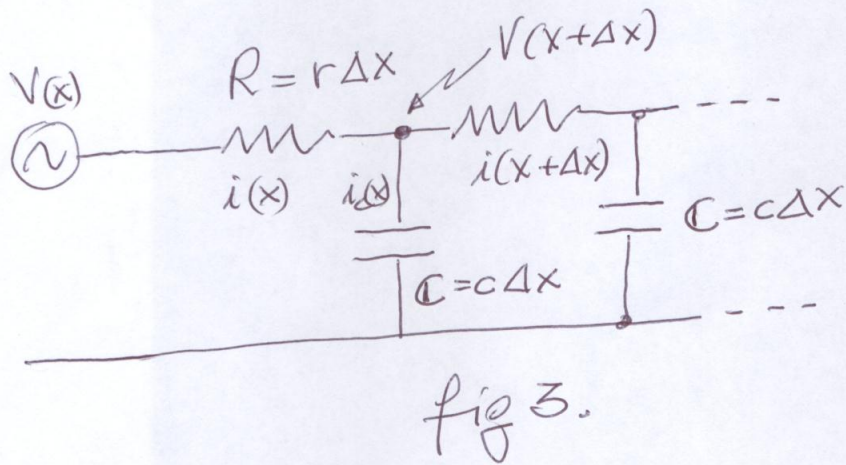 V(x+Δx)
R = rΔx
V(x)
i(x)
i(x+Δx)
C = cΔx
C = cΔx
fig 3.